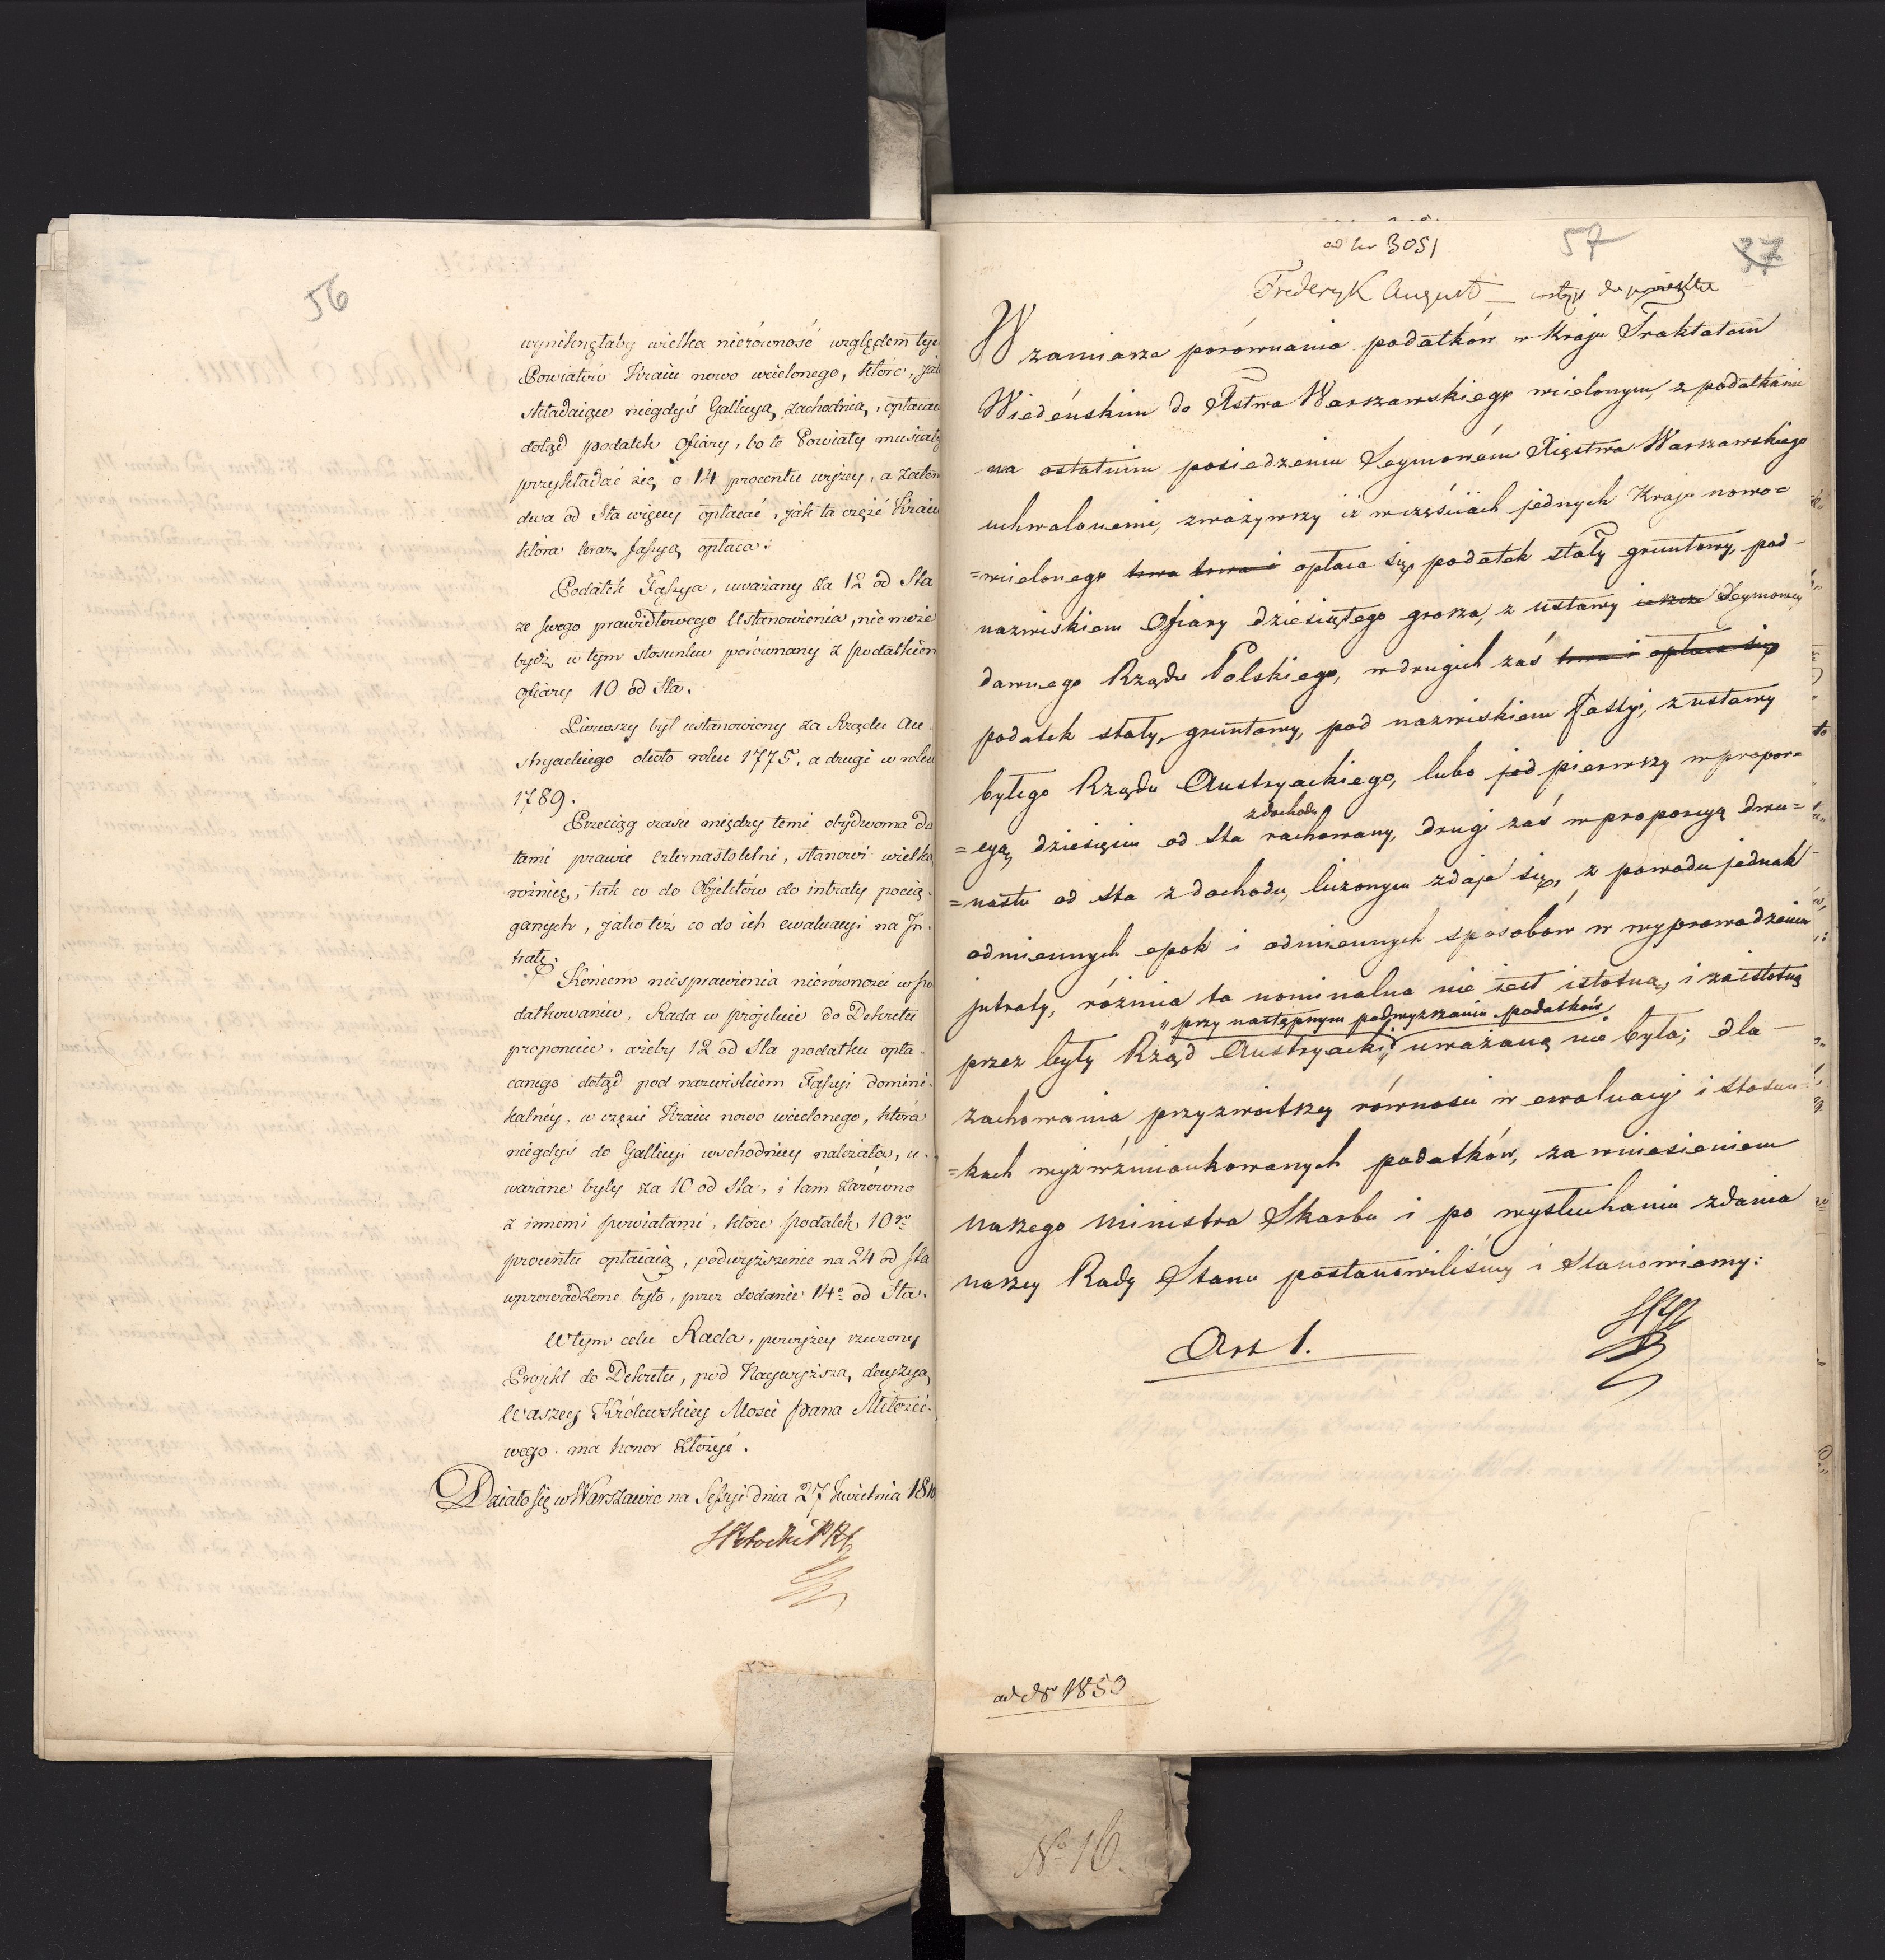 56
wyniknęłaby wielka nierówność względem tych
Powiatów Kraiu nowo wcielonego, które, jako
składaiące niegdyś Gallicyą zachodnią, opłacaią
dotąd podatek Ofiary, bo te Powiaty musiały
przykładać się o 14 procentu wyżey, a zatem
dwa od Sta więcey opłacać, jak ta część Kraiu
która teraz Fassyą opłaca.
Podatek Fassya, uważany za 12 od Sta
ze swego prawidłowego Ustanowienia, nie może
bydź w tym stosunku porównany z podatkiem
Ofiary 10 od Sta.
Pierwszy był ustanowiony za Rządu Au-
stryackiego około roku 1775, a drugi w roku
1789.
Przeciąg czasu między temi obydwoma da
tami prawie czternastoletni, stanowi wielką
różnicę, tak co do Objektów do intraty pocią-
ganych, jako też co do ich ewaluacyi na In-
tratę.
Końcem niesprawienia nierówności w po
datkowaniu, Rada w projekcie do Dekretu
proponuie, ażeby 12 od Sta podatku opła-
canego dotąd pod nazwiskiem Fassyi domini-
kalnéy, w części Kraiu nowo wcielonego, która
niegdyś do Gallicyi wschodniey należała, u-
ważane były za 10 od Sta, i tam zarówno
z innemi powiatami, które podatek 10go
procentu opłacaią, podwyższenie na 24 od Sta
wprowadzone było, przez dodanie 14o od Sta.
W tym celu Rada, powyżey rzeczony
Projekt do Dekretu, pod Naywyższą decyzyą
Waszey Królewskiey Mości Pana Miłości-
wego ma honor złożyć.
Działo się w Warszawie na Sessyi dnia 27 Kwietnia 1810
ad Nr 3051
57
37
Fryderyk August — wstęp do projektu
W zamiarze porównania podatków w Kraju Traktatem
Wiedeńskim do Xstwa Warszawskiego wcielonym, z podatkami
na ostatnim posiedzeniu Seymowém Xięstwa Warszawskiego
uchwalonemi, zważywszy iż w częściach jednych Kraju nowo=
=wcielonego trwa trwa i opłaca się podatek stały gruntowy, pod
nazwiskiem Ofiary dziesiątego grosza, z ustawy Seymowey
dawnego Rządu Polskiego, w drugich zaś trwa i opłaca się
podatek stały, gruntowy, pod nazwiskiem Fassyi, z ustawy
byłego Rządu Austryackiego, lubo jod pierwszy w propor=
z dochodu
=cyą dziesięciu od Sta rachowany, drugi zaś w proporcyą dwu=
=nastu od sta z dochodu, liczonym zdaje się, z powodu jednak
odmiennych epok i odmiennych sposobów w wyprowadzeniu
jntraty, różnica ta nominalna nie iest istotną, i za istotną
"przy następnym podwyższaniu podatków
przez były Rząd Austryacki, uważaną nie była; dla
zachowania przyzwoitszey równości w ewaluacyi i stosun
=kach wyż wzmiankowanych podatków, za wniesieniem
naszego Ministra Skarbu i po wysłuchaniu zdania
naszey Rady Stanu postanowiliśmy i Stanowiemy:
Art 1.
ad Nr 1853
No 16.